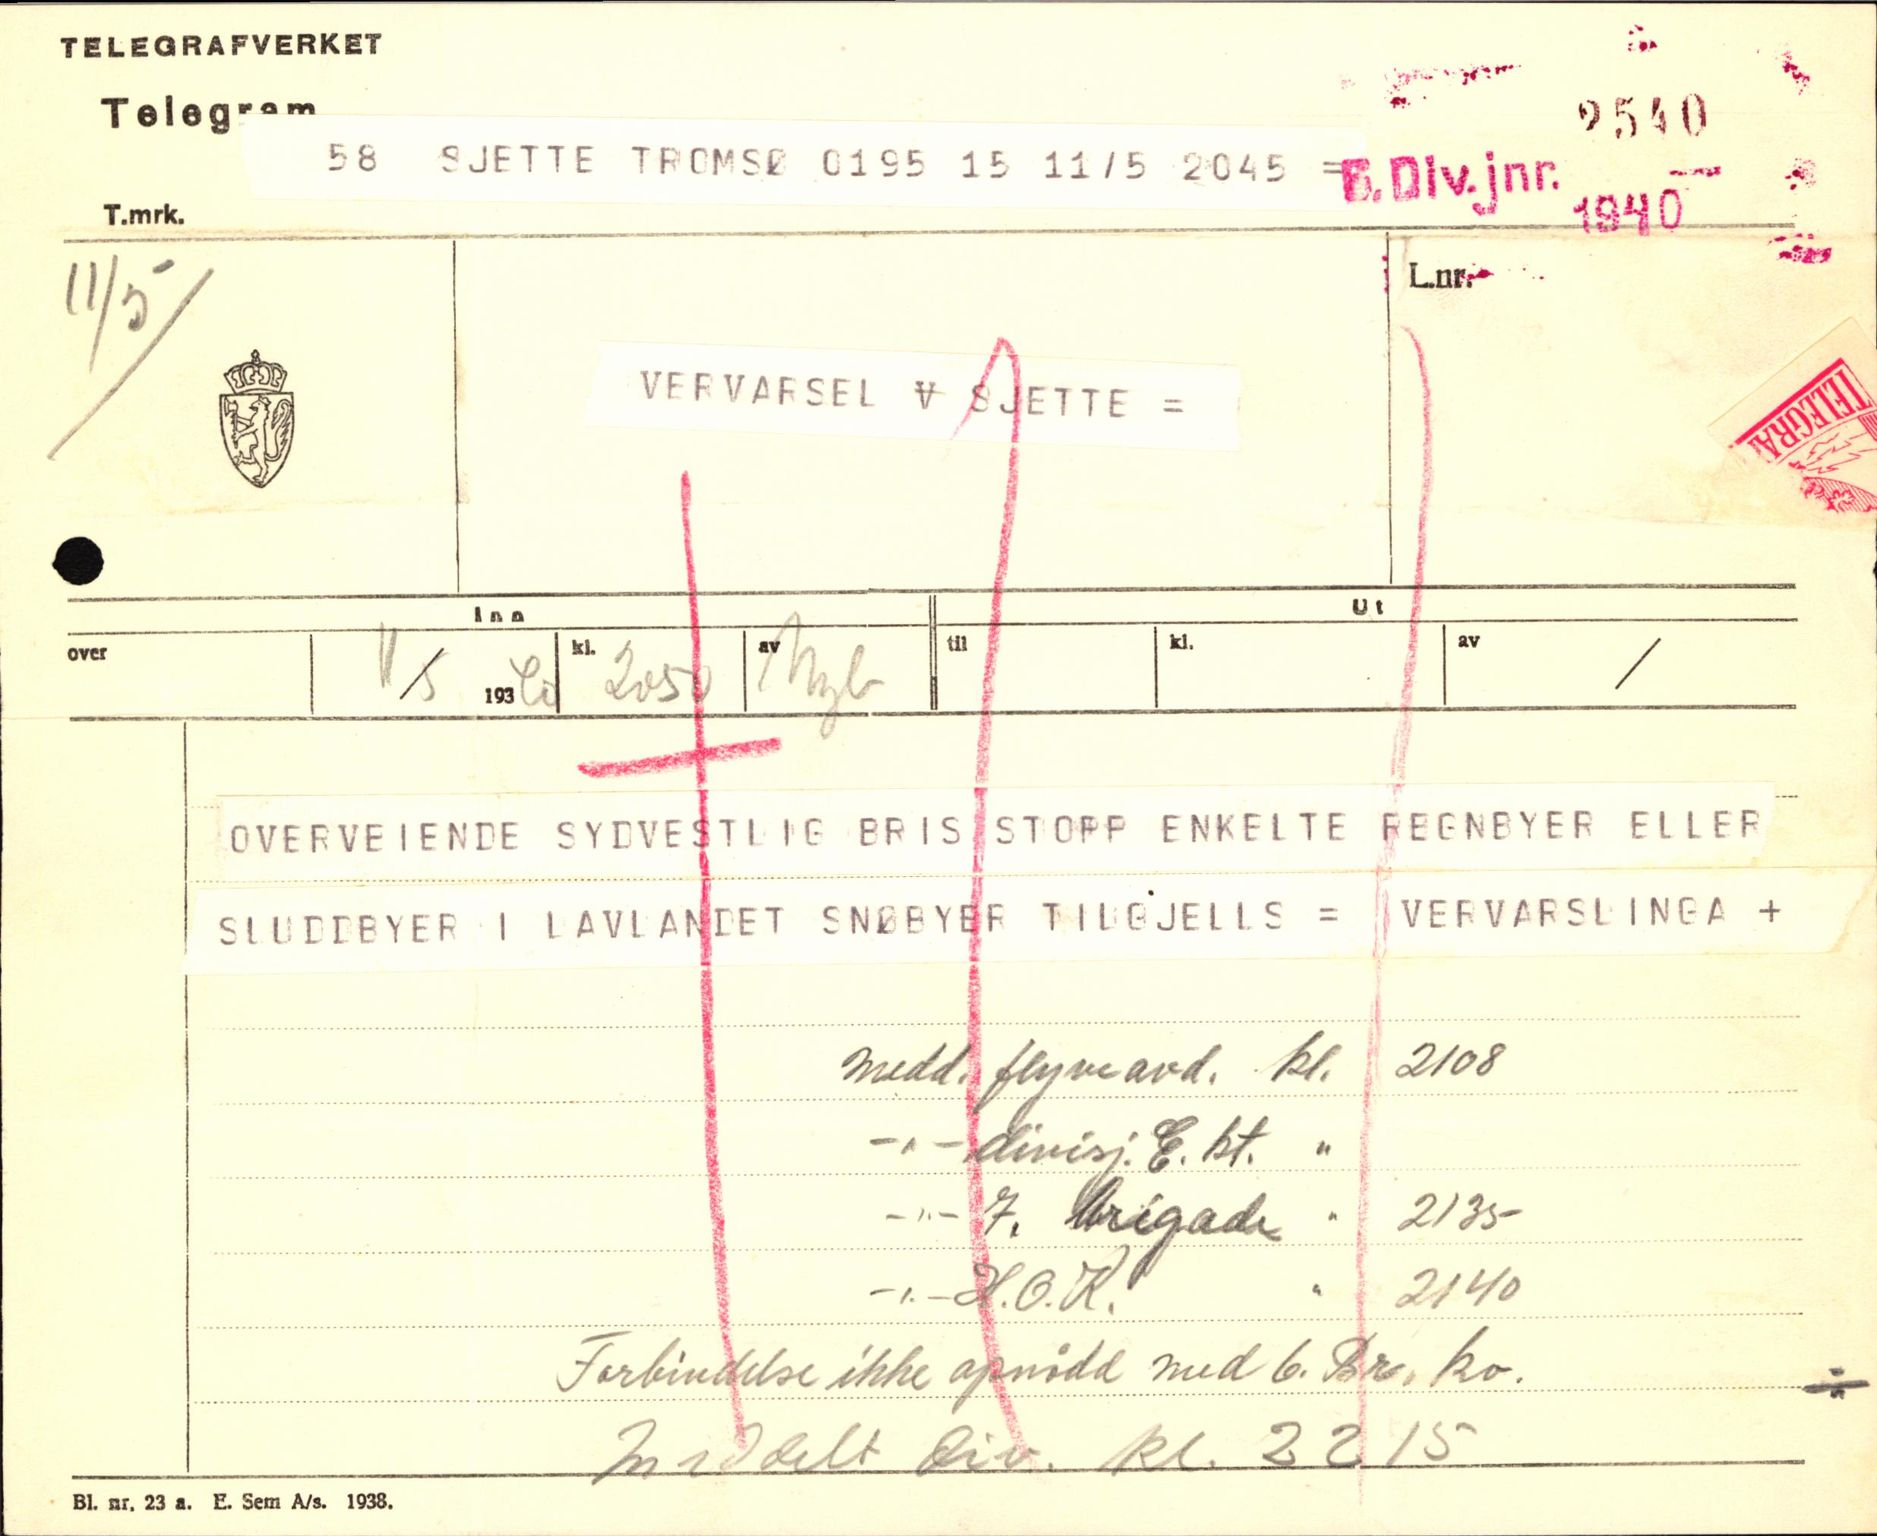 TELEGRAFVERKET
Telegram
58 SJETTE TROMSØ 0195 15 11/5 2045 =
2540
6. Div. jnr.
1940
T.mrk.
11/5
L.nr.
TELEGRA
VERVARSEL V SJETTE =
Inn
Ut
over
11/5 1940
kl. 2050
av
til
kl.
av /
OVERVEIENDE SYDVESTLIG BRIS STOPP ENKELTE REGNBYER ELLER
SLUDDBYER I LAVLANDET SNØBYER TILGJELLS = VERVARSLINGA +
Medd. flyveavd. kl. 2108
-"- divisj. E. kt. "
-"- 7. brigade " 2135
-"- H.O.K. " 2140
Forbindelse ikke opnådd med 6. Br. ko.
Meddelt div. kl. 2215
Bl. nr. 23 a. E. Sem A/s. 1938.